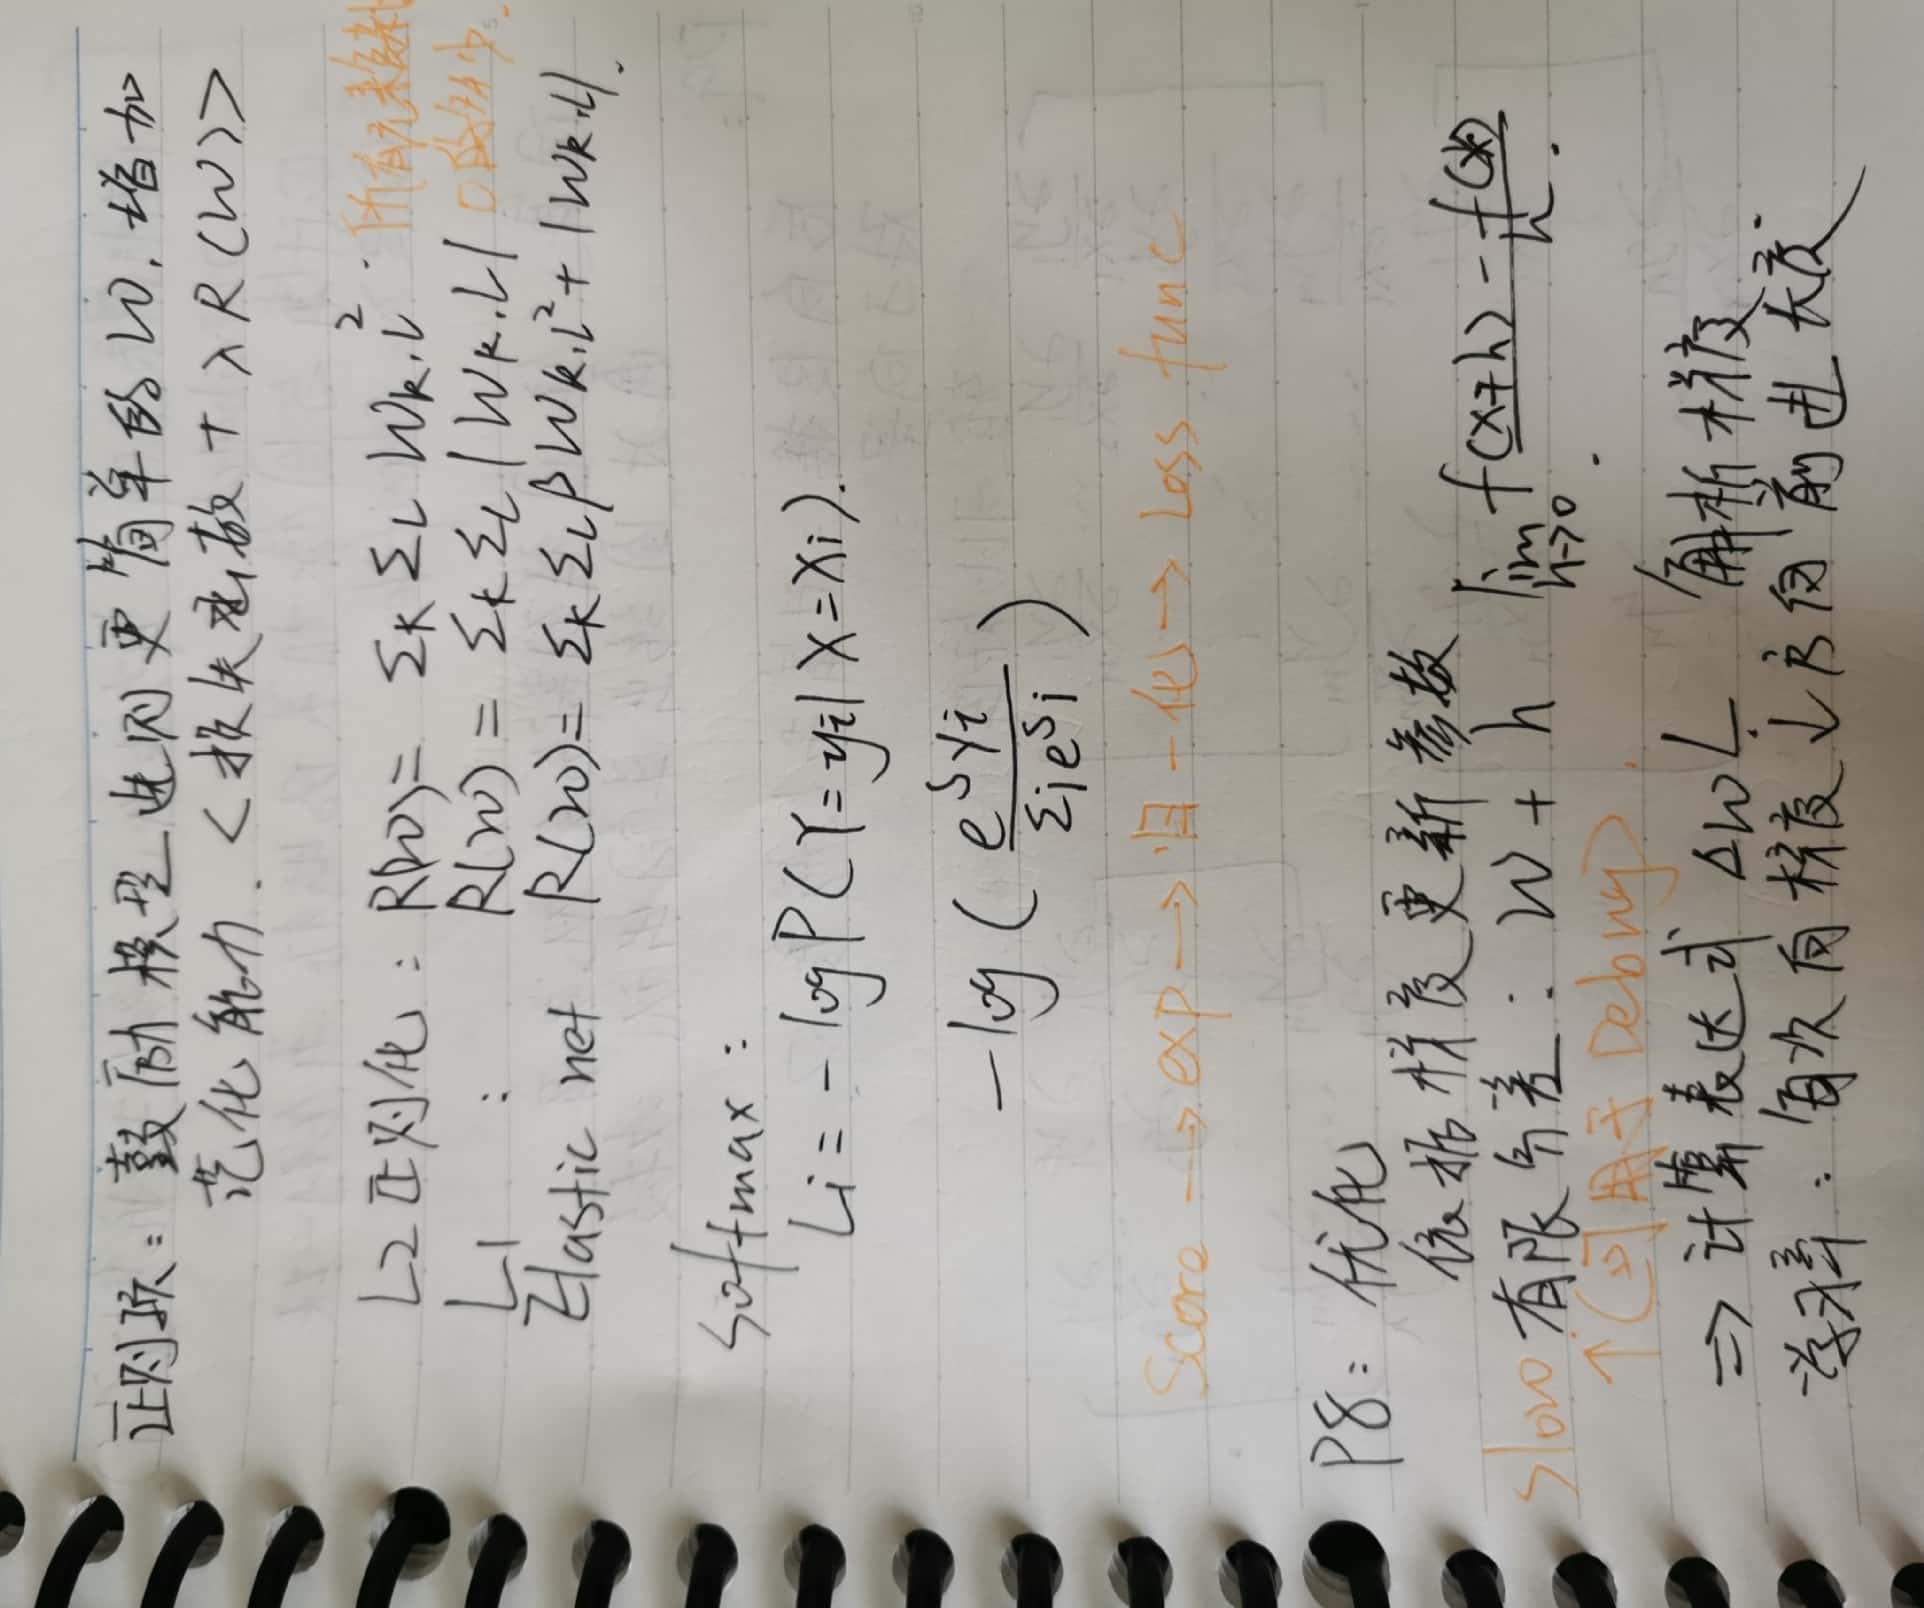 正则项：鼓励模型选用更简单的W，增加
范化能力.<损失函数+λR(W)>
L2正则化：R(W)=ΣkΣL Wk,L². 所有元素
L1 : R(W)=ΣkΣL|Wk,L| 0
Elastic net R(W)=ΣkΣLβWk,L²+|Wk,L|.
softmax:
Li=-logP(Y=yi|X=Xi).
-log(e^Syi/Σje^Sj)
Score→exp→归一化→Loss func
P8：优化
依据梯度更新参数
slow 有限差分：W+h lim h→0 f(x+h)-f(x)/h.
↑(可用于Debug)
⇒计算表达式ΔWL 解析梯度.
学习率：每次向梯度↓方向前进长度